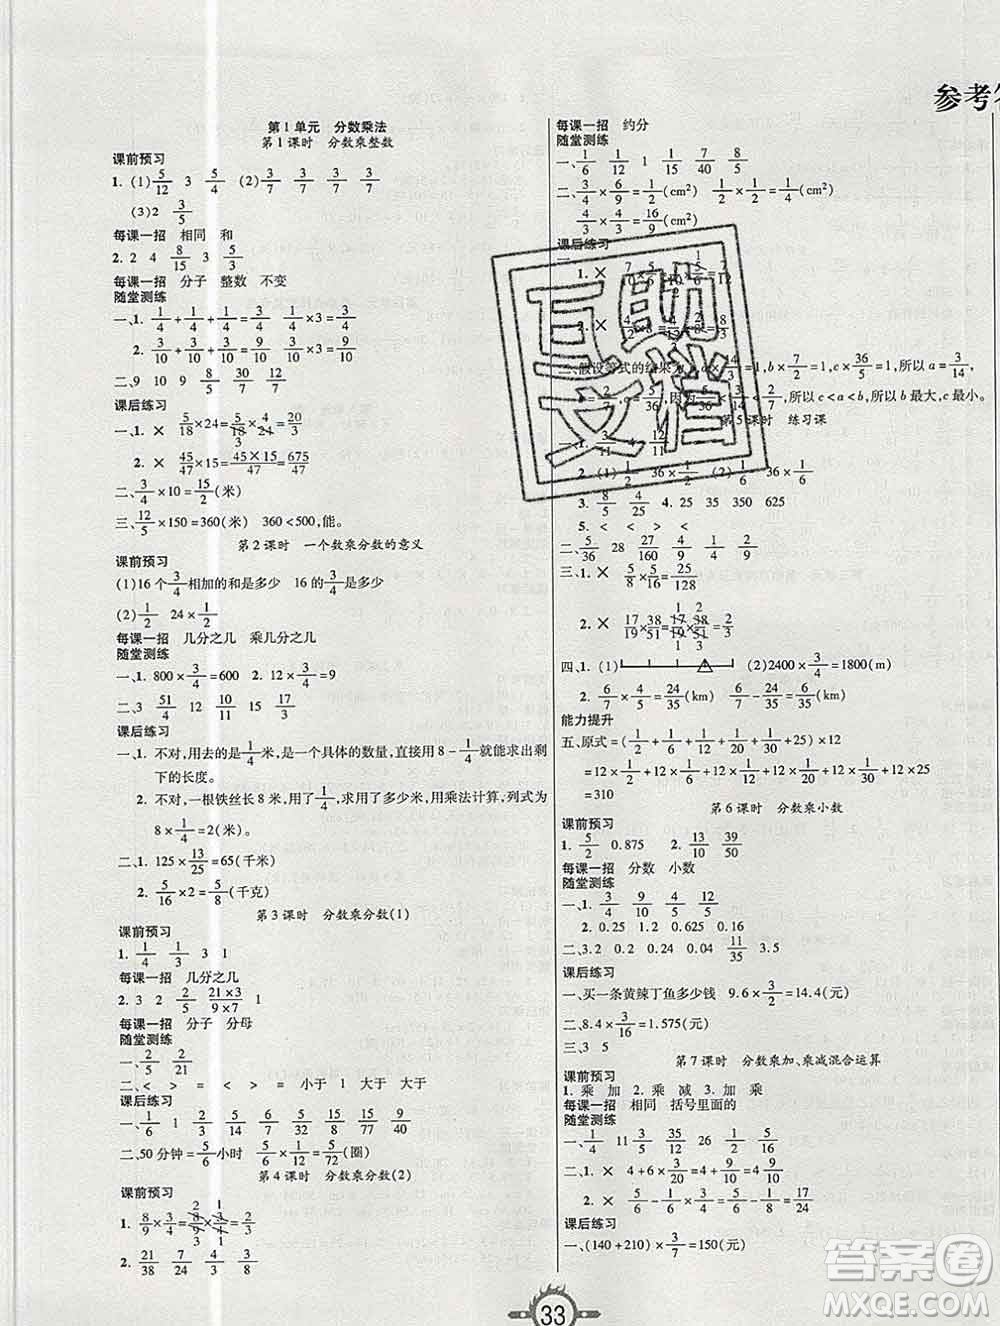 参考答
第1单元 分数乘法
第1课时 分数乘整数
课前预习
1. (1)5/12 3 5/4 (2)3/7 3/7 3/7 3/7
(3)2 3/5
每课一招 相同 和
2. 2 4 8/15 3 5/3
每课一招 分子 整数 不变
随堂测练
一、1. 1/4+1/4+1/4=1/4×3=3/4
2. 3/10+3/10+3/10=3/10×3=9/10
二、9 10 9 9/10 30/7 12/7
课后练习
一、1. × 5/18×24=5/18×24=20/3
2. × 45/47×15=45×15/47=675/47
二、3/4×10=15/2(米)
三、12/5×150=360(米) 360<500,能。
第2课时 一个数乘分数的意义
课前预习
(1)16个3/4相加的和是多少 16的3/4是多少
(2)1/2 24×1/2
每课一招 几分之几 乘几分之几
随堂测练
一、1. 800×3/4=600 2. 12×3/4=9
二、3 51/4 12 10/11 15 4/17
课后练习
一、1. 不对,用去的是1/4米,是一个具体的数量,直接用8-1/4就能求出剩
下的长度。
2. 不对,一根铁丝长8米,用了1/4,求用了多少米,用乘法计算,列式为
8×1/4=2(米)。
二、1. 125×13/25=65(千米)
2. 5/16×2=5/8(千克)
第3课时 分数乘分数(1)
课前预习
1. 1/4 1/3 3 1
每课一招 几分之几
2. 3 2 2/5 21×3/9×7 1
每课一招 分子 分母
随堂测练
一、2/5 2/21
二、< > < = 小于 1 大于 大于
课后练习
一、1/6 1 2/3 5/14 6/5 5/32 8/15 48/77
二、50分钟=5/6小时 5/6×1/12=5/72(圈)
第4课时 分数乘分数(2)
课前预习
1. 8/9×3/4=8/9×3/4=2/3
2. 21/38 7/24 21/50 24/55
每课一招 约分
随堂测练
一、1/6 1/15 1 4/5 7/40 8/5
二、3/4×6/9=1/2(cm²) 1/2×1/2=1/4(cm²)
4/3×4/3=16/9(cm²)
课后练习
第5课时 练习课
2. (1)1/2 36×1/2 (2)1/6 36×1/6
3. 8/5 4/25 4. 25 35 350 625
5. < < > <
二、5/36 28 27/160 9/4 1/4 1/2
三、1. × 5/8×5/16=25/128
2. × 17/19×38/51=17/19×38/51=2/3
四、1. (1) (2)2400×3/4=1800(m)
2. 6/7×4/5=24/35(km) 6/7-6/35=24/35(km)
能力提升
五、原式=(1/2+1/6+1/12+1/20+1/30+25)×12
=12×1/2+12×1/6+12×1/12+12×1/20+12×1/30+12×25
=310
第6课时 分数乘小数
课前预习
1. 5/2 0.875 2. 13/10 39/50
每课一招 分数 小数
随堂测练
一、1. 9/10 3/4 1/4 9/10
2. 0.25 1.2 0.625 0.16
二、3.2 0.2 0.4 0.2 11/35 3.5
课后练习
一、买一条黄辣丁鱼多少钱 9.6×3/2=14.4(元)
二、8.4×3/16=1.575(元)
三、3 5
第7课时 分数乘加、乘减混合运算
课前预习
1. 乘 加 2. 乘 减 3. 加 乘
每课一招 相同 括号里面的
随堂测练
一、1/4 11 3/5 35/12 26 1/2 5/16
二、1. × 4+6×3/20=4+9/10=4 9/10
课后练习
一、(140+210)×3/7=150(元)
33
互助文档
答案圈
MXQE.COM